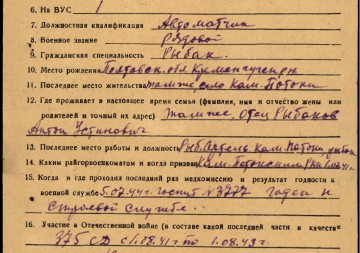 6. На ВУС 1
7. Должностная квалификация Автоматчик
8. Военное звание Рядовой
9. Гражданская специальность Рыбак.
10. Место рождения Полтавск. обл Кременчугский р-н
11. Последнее место жительства там же село Кам. Потоки
12. Где проживает в настоящее время семья (фамилия, имя и отчество жены или
родителей и точный их адрес) там же, Отец Рыбаков
Антон Устинович
13. Последнее место работы и должность Рыб. Артель Кам. Потоки рыбак
14. Каким райгорвоенкоматом и когда призван Кам. Потокским РВК
15. Когда и где проходил последний раз медкомиссию и результат годности к
военной службе 5.07.44г. госпит №3777 годен к
строевой службе.
16. Участие в Отечественной войне (в составе какой последней части и в качестве
375 СД с 1.08.41г по 1.08.43г.